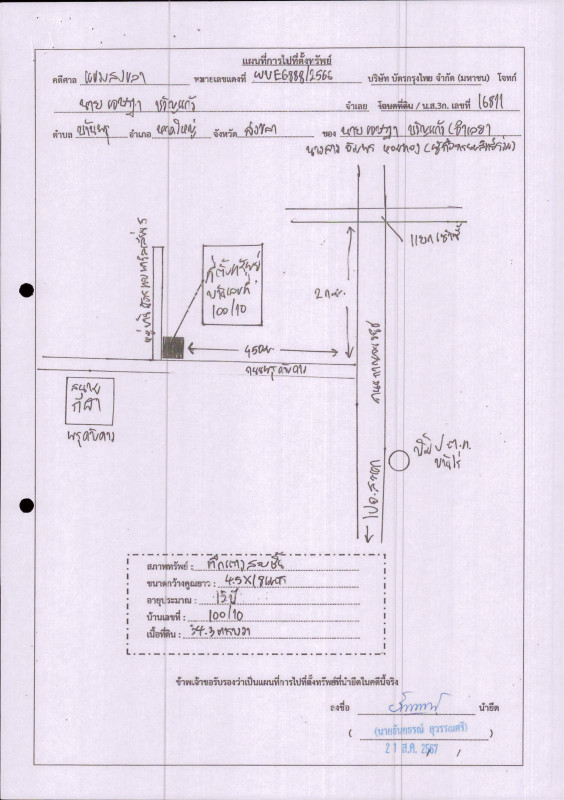 แผนที่การไปที่ตั้งทรัพย์
คดีศาล แขวงสงขลา หมายเลขแดงที่ ผบE6888/2566 บริษัท บัตรกรุงไทย จำกัด (มหาชน) โจทก์
นาย เจษฎา ขวัญแก้ว จำเลย โฉนดที่ดิน / น.ส.3ก. เลขที่ 16811
ตำบล บ้านพรุ อำเภอ หาดใหญ่ จังหวัด สงขลา ของ นาย เจษฎา ขวัญแก้ว (จำเลย)
นางสาว (ผู้ถือกรรมสิทธิ์ร่วม)
ที่ตั้งทรัพย์
บ้านเลขที่
100/10
2 ก.ม.
450ม
ถนนพรุดับดาว
สนาม
กีฬา
พรุดับดาว
ปั๊ม ป.ต.ท.
บ้านไร่
สภาพทรัพย์ : ตึกแถวสองชั้น
ขนาดกว้างคูณยาว : 4.5X18เมตร
อายุประมาณ : 15 ปี
บ้านเลขที่ : 100/10
เนื้อที่ดิน : 34.3 ตารางวา
ข้าพเจ้าขอรับรองว่าเป็นแผนที่การไปที่ตั้งทรัพย์ที่นำยึดในคดีนี้จริง
ลงชื่อ นำยึด
(นายธันยธรณ์ สุวรรณศรี)
21 ส.ค. 2567